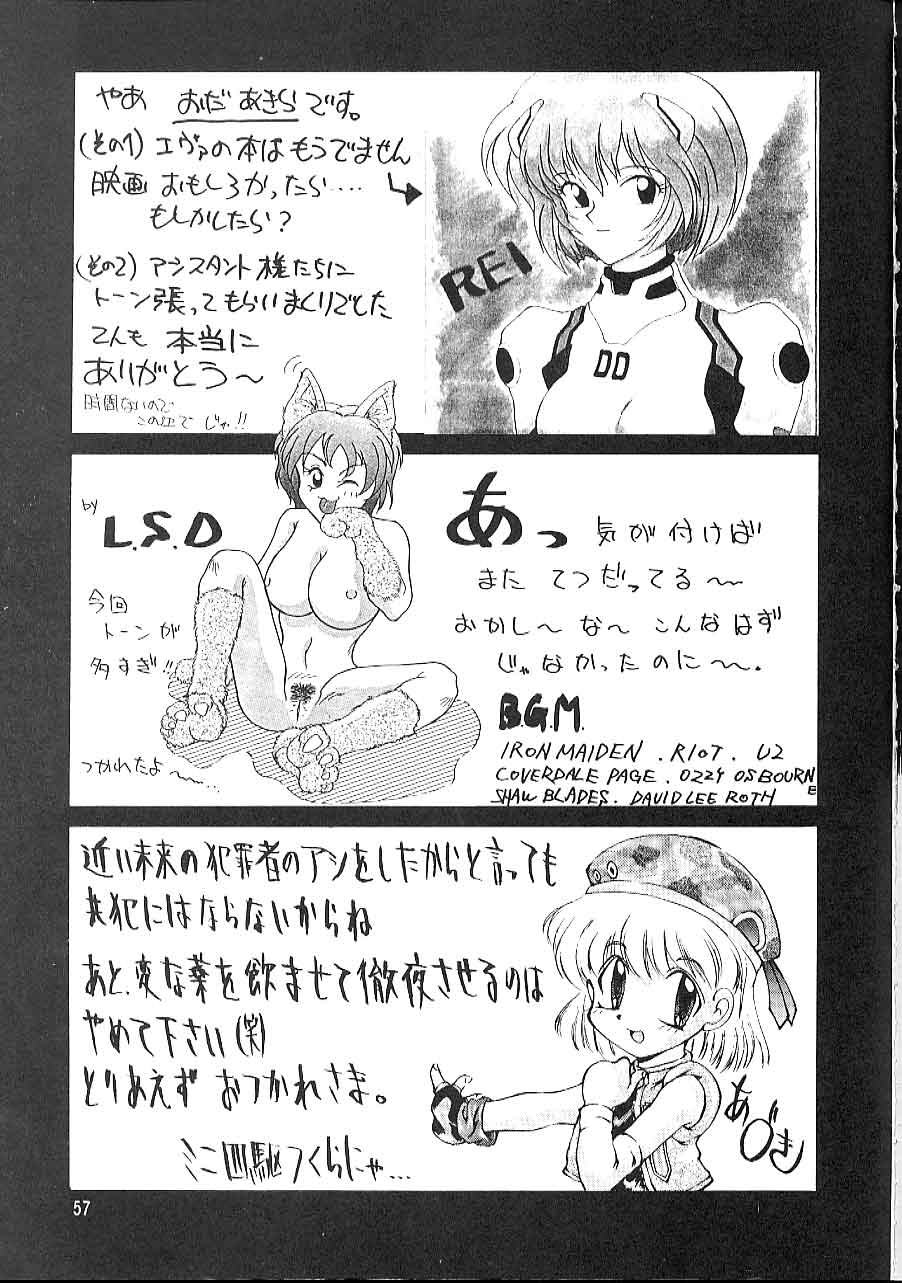 やあ おだあきらです。
(その1) エヴァの本はもうでません
映画 おもしろかったら‥‥
もしかしたら?
(その2) アシスタント様たちに
トーン張ってもらいまくりでした
てんも 本当に
ありがとう〜
時間ないので
この辺で じゃ!!
REI
00
by
L.S.D
今回
トーンが
多すぎ!!
つかれたよ〜
あっ 気が付けば
また てつだってる〜
おかし〜 な〜 こんなはず
じゃなかったのに〜.
B.G.M.
IRON MAIDEN . RIOT . U2
COVERDALE PAGE . OZZY OSBOURNE
SHAW BLADES . DAVID LEE ROTH
近い未来の犯罪者のアシをしたからと言っても
共犯にはならないからね
あと、変な薬を飲ませて徹夜させるのは
やめて下さい(笑)
とりあえず おつかれさま。
ミニ四駆つくらにゃ…
あづき
57